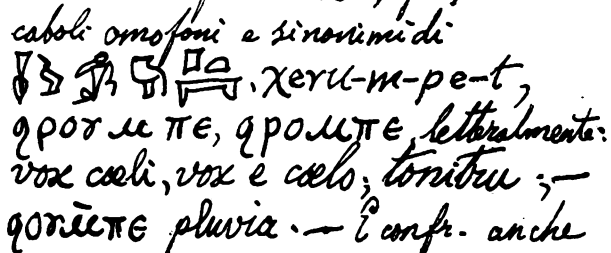 caboli omofoni e sinonimi di
. xeru-m-pe-t,
ϥⲣⲟⲩ ⲙ ⲡⲉ, ϥⲣⲟⲙⲡⲉ, letteralmente:
vox cœli, vox e cœlo; tonitru ; —
ϥⲟⲩⲙ̄ⲡⲉ pluvia. — E confr. anche